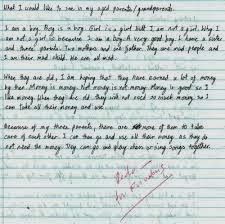 What I would like to see in my aged parents/grandparents.
I am a boy. Boy is a boy. Girl is a girl but I am not a girl. Why I
am not a girl is because I am a boy. A very good boy. I have a sister
and three parents. Two mothers and one father. They are mad people and
I am their mad child. We are all mad.
When they are old, I am hoping that they have earned a lot of money
by then. Money is money. Not money is not money. Money is good so I
like money. When they are old they will not need so much money so I
can take all their money and use
Because of my three parents, there are more of them to take
care of each other. I can then go and use all their money as they do
not need the money. They can go and play chess or sing songs together.